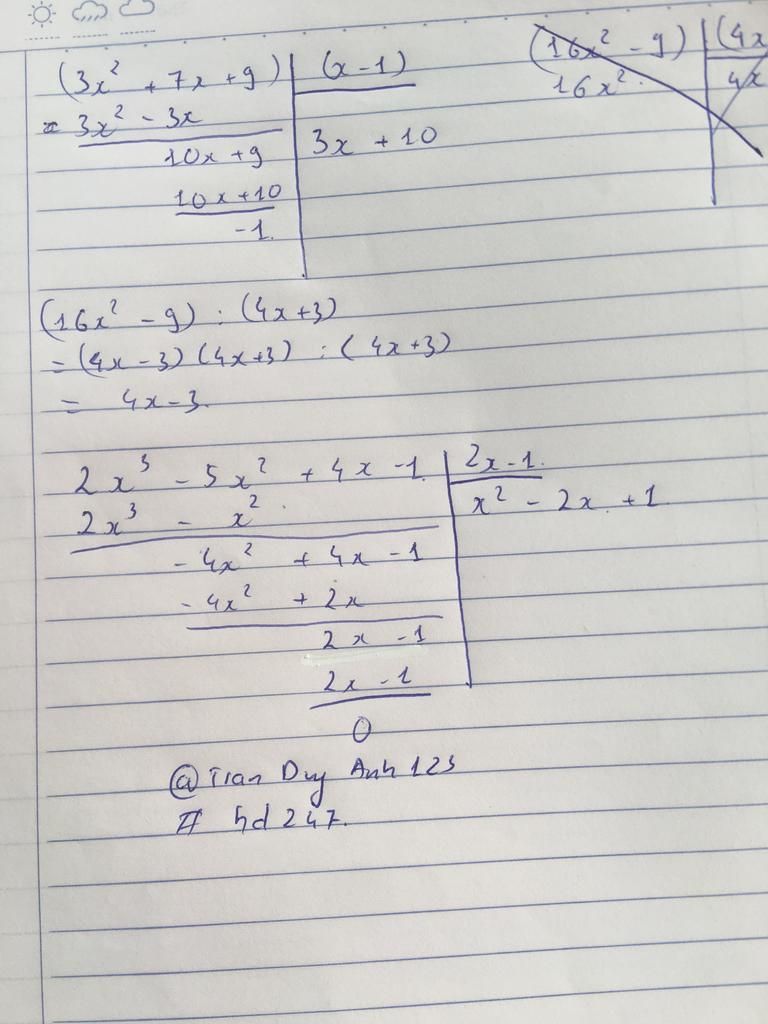 (3x² + 7x + 9) | (x - 1)
- 3x² - 3x
3x + 10
10x + 9
10x + 10
-1.
(16x² - 9) | (4x
16x² | 4x
(16x² - 9) : (4x + 3)
= (4x - 3)(4x + 3) : (4x + 3)
= 4x - 3.
2x³ - 5x² + 4x - 1 | 2x - 1.
2x³ - x² | x² - 2x + 1
- 4x² + 4x - 1
- 4x² + 2x
2x - 1
2x - 1
0
@Tran Duy Anh 123
# hd 247.